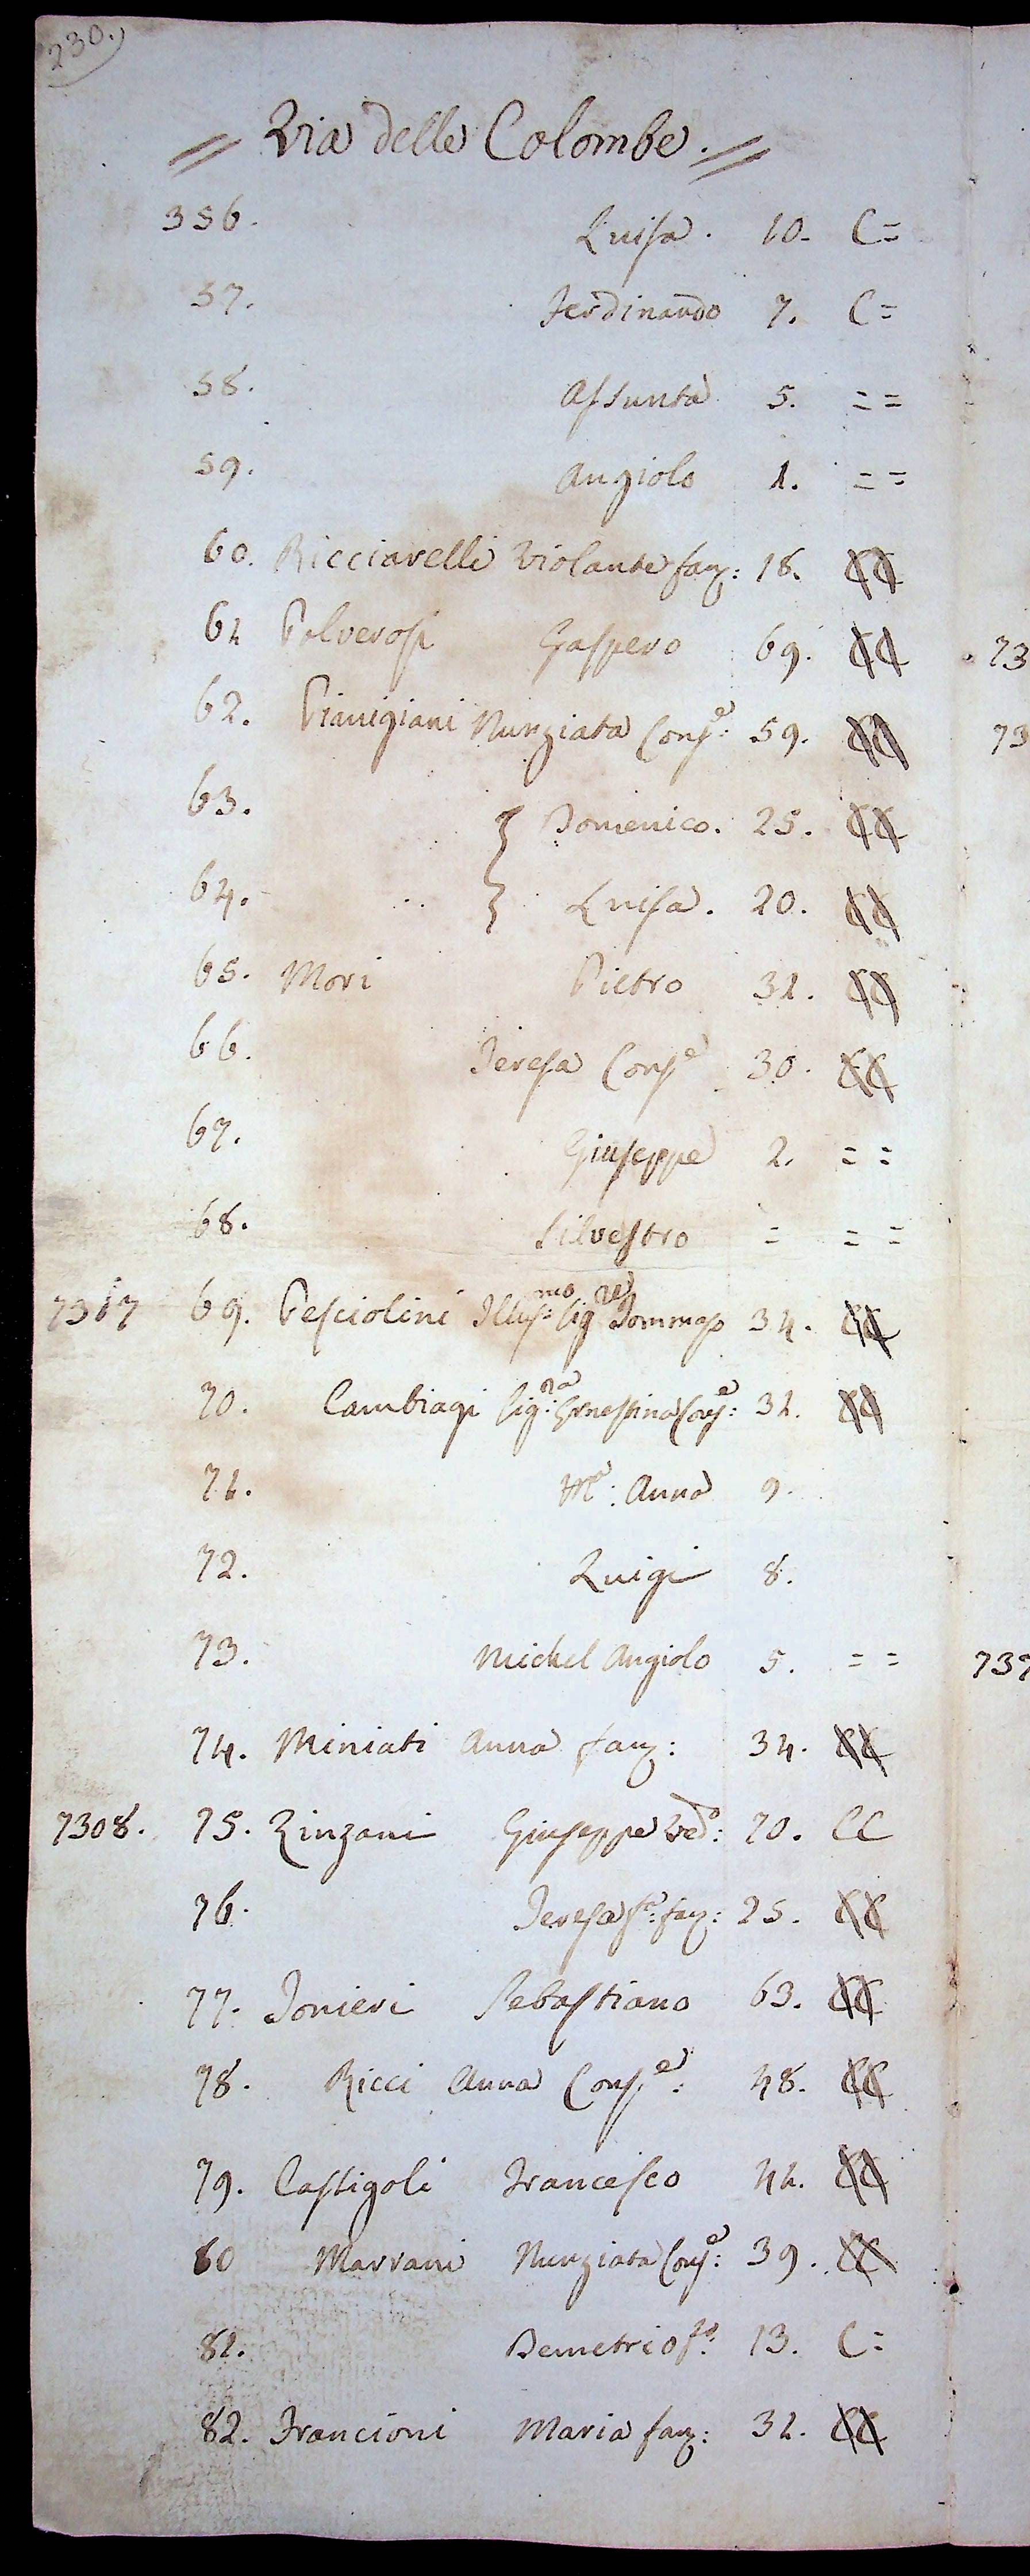 230.
= Via delle Colombe. =
356. Luisa. 10. C=
57. Ferdinando 7. C=
58. Assunta 5. ==
59. Angiolo 1. ==
60. Ricciarelli Violante fan: 18. CC
61 Polverosi Gaspero 69. CC
62. Pianigiani Nunziata Cons.e: 59. CC
63. { Domenico. 25. CC
64. { Luisa. 20. CC
65. Mori Pietro 31. CC
66. Teresa Cons.e 30. CC
67. Giuseppe 2. ==
68. Silvestro = ==
7317 69. Pesciolini Illus.mo Sig.re Tommaso 34. CC
70. Cambiagi Sig.ra: Ernestina Cons.e: 31. CC
71. M.a: Anna 9.
72. Luigi 8.
73. Michel Angiolo 5. ==
74. Miniati Anna fan: 34. CC
7308. 75. Zinzani Giuseppe Ved.o: 70. CC
76. Teresa f.a: fan: 25. CC
77. Tonieri Sebastiano 63. CC
78. Ricci Anna Cons.e: 48. CC
79. Castigoli Francesco 41. CC
80 Marrani Nunziata Cons.e: 39. CC
81. Demetrio f.o: 13. C=
82. Francioni Maria fan: 31. CC